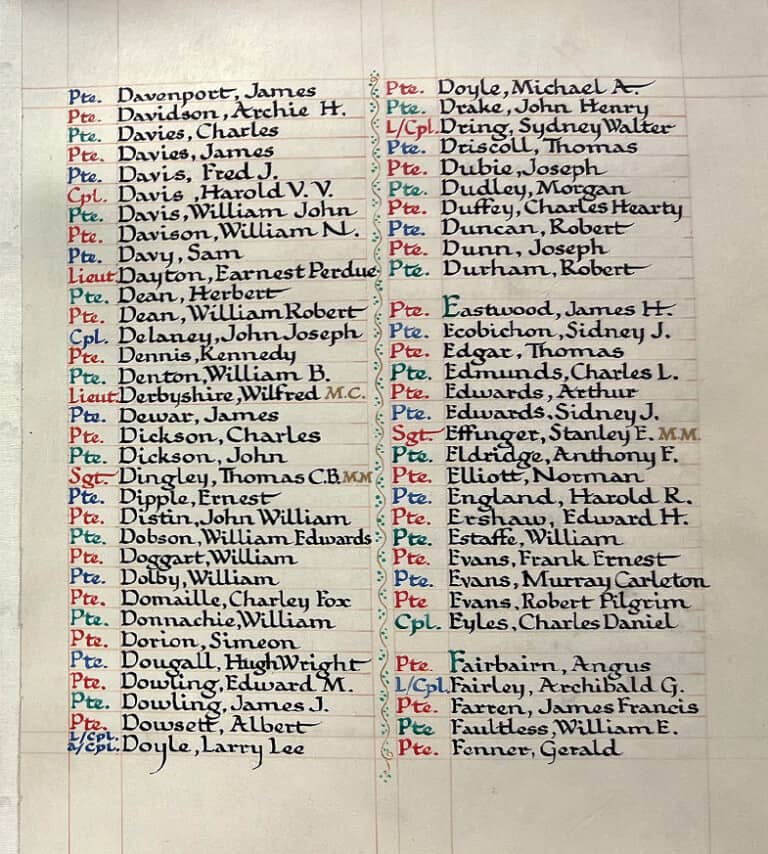 Pte. Davenport, James
Pte. Davidson, Archie H.
Pte. Davies, Charles
Pte. Davies, James
Pte. Davis, Fred J.
Cpl. Davis, Harold V. V.
Pte. Davis, William John
Pte. Davison, William N.
Pte. Davy, Sam
Lieut. Dayton, Earnest Perdue
Pte. Dean, Herbert
Pte. Dean, William Robert
Cpl. Delaney, John Joseph
Pte. Dennis, Kennedy
Pte. Denton, William B.
Lieut. Derbyshire, Wilfred M.C.
Pte. Dewar, James
Pte. Dickson, Charles
Pte. Dickson, John
Sgt. Dingley, Thomas C.B. MM
Pte. Dipple, Ernest
Pte. Distin, John William
Pte. Dobson, William Edwards
Pte. Doggart, William
Pte. Dolby, William
Pte. Domaille, Charley Fox
Pte. Donnachie, William
Pte. Dorion, Simeon
Pte. Dougall, Hugh Wright
Pte. Dowling, Edward M.
Pte. Dowling, James J.
Pte. Dowsett, Albert
L/Cpl. a/Cpl. Doyle, Larry Lee
Pte. Doyle, Michael A.
Pte. Drake, John Henry
L/Cpl. Dring, Sydney Walter
Pte. Driscoll, Thomas
Pte. Dubie, Joseph
Pte. Dudley, Morgan
Pte. Duffey, Charles Hearty
Pte. Duncan, Robert
Pte. Dunn, Joseph
Pte. Durham, Robert
Pte. Eastwood, James H.
Pte. Ecobichon, Sidney J.
Pte. Edgar, Thomas
Pte. Edmunds, Charles L.
Pte. Edwards, Arthur
Pte. Edwards, Sidney J.
Sgt. Effinger, Stanley E. M.M.
Pte. Eldridge, Anthony F.
Pte. Elliott, Norman
Pte. England, Harold R.
Pte. Ershaw, Edward H.
Pte. Estaffe, William
Pte. Evans, Frank Ernest
Pte. Evans, Murray Carleton
Pte Evans, Robert Pilgrim
Cpl. Eyles, Charles Daniel
Pte. Fairbairn, Angus
L/Cpl. Fairley, Archibald G.
Pte. Farren, James Francis
Pte Faultless, William E.
Pte. Fenner, Gerald